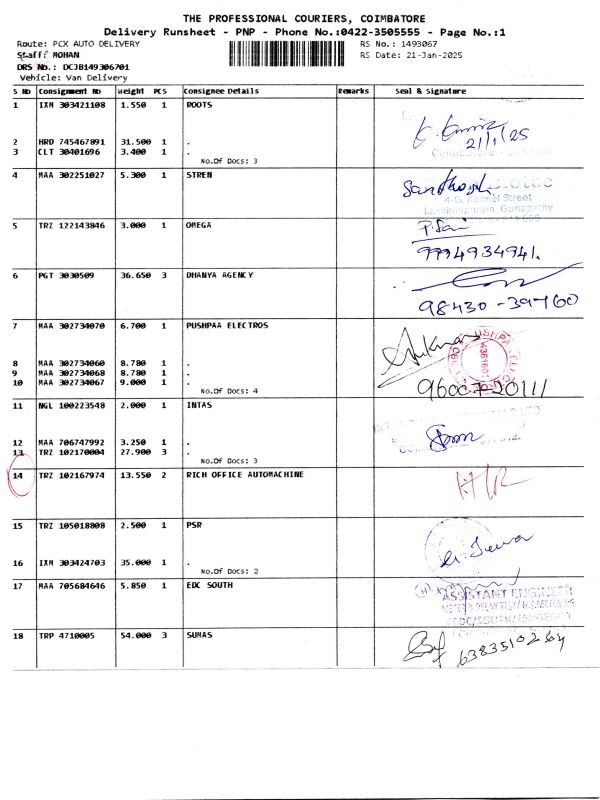 THE PROFESSIONAL COURIERS, COIMBATORE
Delivery Runsheet - PNP - Phone No.:0422-3505555 - Page No.:1
Route: PCX AUTO DELIVERY RS No.: 1493067
Staff: MOHAN RS Date: 21-Jan-2025
DRS No.: DCJB149306701
Vehicle: Van Delivery
S No Consignment No Weight PCS Consignee Details Remarks Seal & Signature
1 IXM 303421108 1.550 1 ROOTS
21/1/25
2 HRD 745467891 31.500 1 .
3 CLT 30401696 3.400 1 .
No.Of Docs: 3
4 MAA 302251027 5.300 1 STREN
Santhosh
4-G, Kamel Street
Lakshmipuram, Ganapathy
5 TRZ 122143846 3.000 1 OMEGA
P. Sai
9994934941.
6 PGT 3030509 36.650 3 DHANYA AGENCY
98430-39760
7 MAA 302734070 6.700 1 PUSHPAA ELECTROS
8 MAA 302734060 8.780 1 .
9 MAA 302734068 8.780 1 .
10 MAA 302734067 9.000 1 .
No.Of Docs: 4
9600720111
11 NGL 100223548 2.000 1 INTAS
12 MAA 706747992 3.250 1 .
13 TRZ 102170004 27.900 3 .
No.Of Docs: 3
14 TRZ 102167974 13.550 2 RICH OFFICE AUTOMACHINE
15 TRZ 105018808 2.500 1 PSR
16 IXM 303424703 35.000 1 .
No.Of Docs: 2
17 MAA 705684646 5.850 1 EDC SOUTH
ASSISTANT ENGINEER
18 TRP 4710005 54.000 3 SUMAS
6383510264